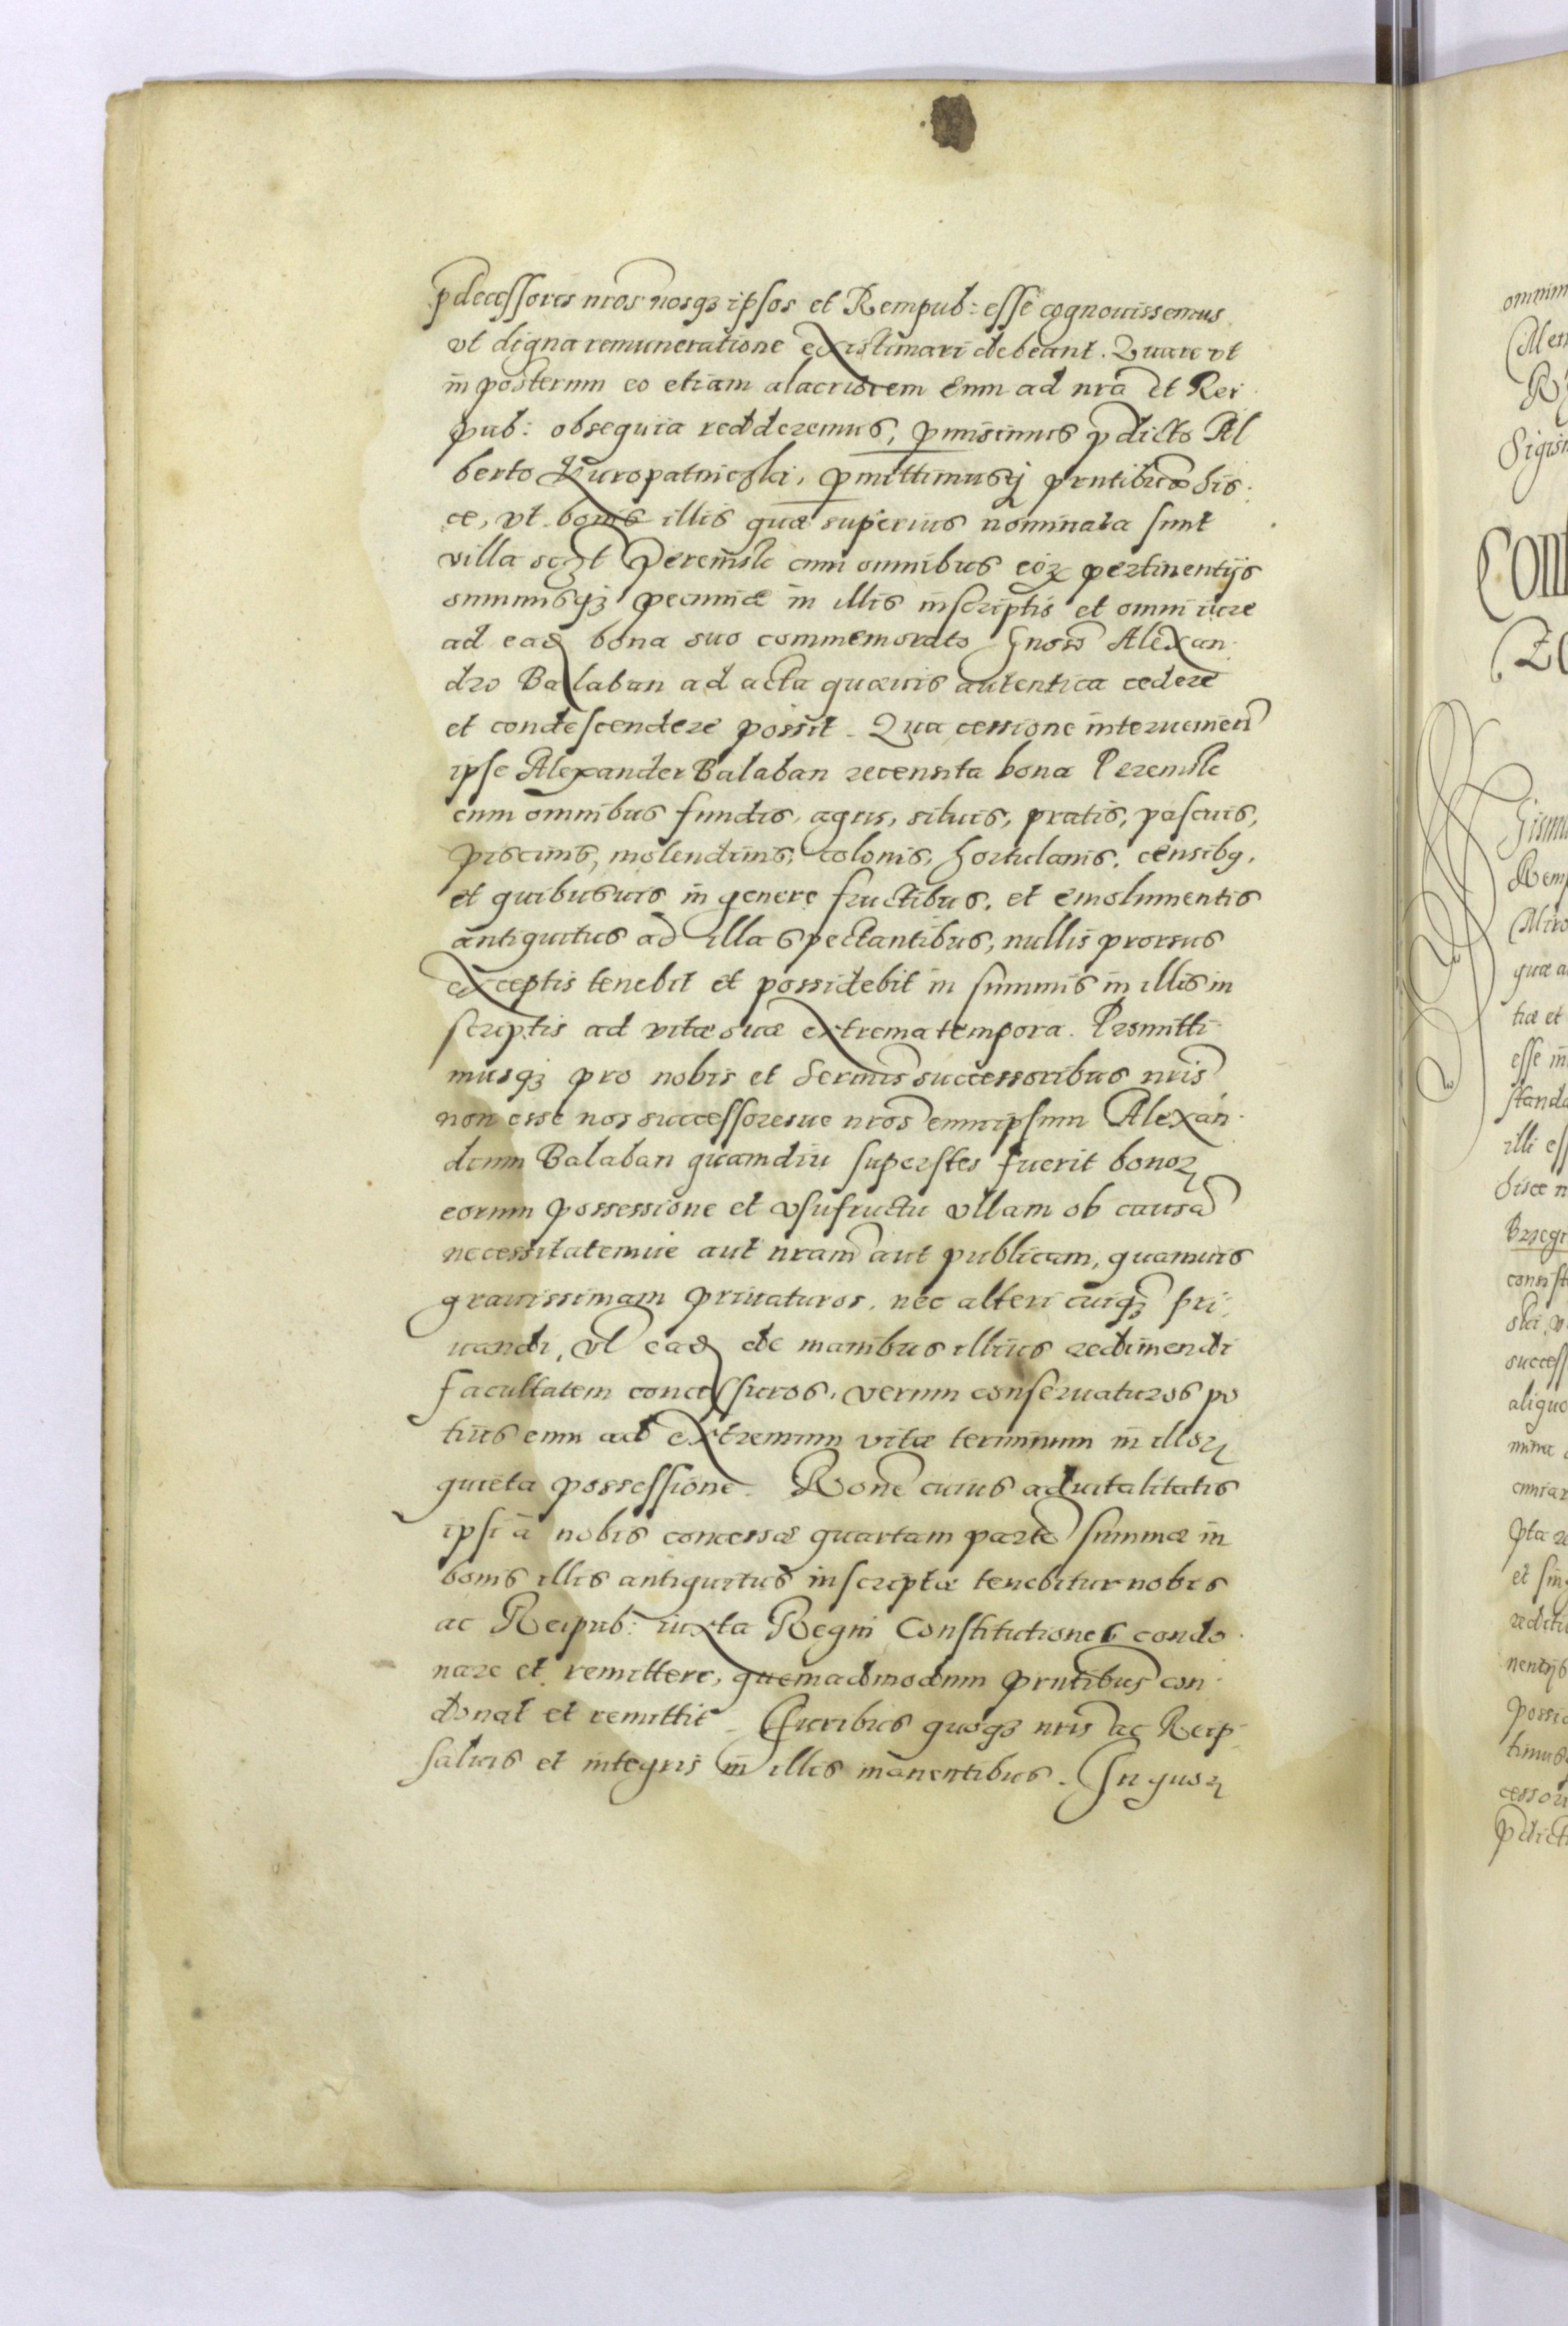 p̄decessores nr̄os nosqꝫ ipsos et Rempub: esse cognouissemus
vt digna remuneratione existimari debeant. Quare vt
in posterum eo etiam alacriorem Eum ad nr̄a et Rei
pub: obsequia redderemus, ꝑmisimus p̄dicto Al
berto Kuropatniczki, ꝑmittimusqꝫ pr̄ntibus his
ce, vt bonis illis quæ superius nominata sunt
villa sczt Peremisle cum omnibus eoꝝ pertinentijs
summisqꝫ pecuniæ in illis inscriptis et omni iure
ad eaꝺ bona suo commemorato Gnoso Alexan
dro Balaban ad acta quæuis autentica cedere
et condescendere possit. Qua cessione interueniēti
ipse Alexander Balaban recensita bona Peremisle
cum omnibus fundis, agris, siluis, pratis, pascuis,
piscinis, molendinis, colonis, hortulanis, censibꝫ,
et quibusuis in genere fructibus, et emolumentis
antiquitus ad illa spectantibus, nullis prorsus
exceptis tenebit et possidebit in summis in illis in
scriptis ad vitæ suæ extrema tempora. Promitti
musqꝫ pro nobis et Sermis successoribus nr̄is
non esse nos successoresue nr̄os eum ipsum Alexan
drum Balaban quamdiu superstes fuerit bonoꝝ
eorum possessione et vsufructu vllam ob causā
necessitatemue aut nr̄am aut publicam, quamuis
grauissimam priuaturos, nec alteri cuiqꝫ pri
uandi, vl eaꝺ de manibus illius redimendi
facultatem concessuros, verum conseruaturos po
tius eum ad extremum vitæ terminum in illoꝝ
quieta possessione. Rōne cuius aduitalitatis
ipsi à nobis concessæ quartam partē summæ in
bonis illis antiquitus inscriptæ tenebitur nobis
ac Reipub: iuxta Regni Constitutiones condo
nare et remittere, quemadmodum pr̄ntibus con
donat et remittit. Iuribus quoqꝫ nr̄is ac Reip
saluis et integris in illis manentibus. In quoꝝ